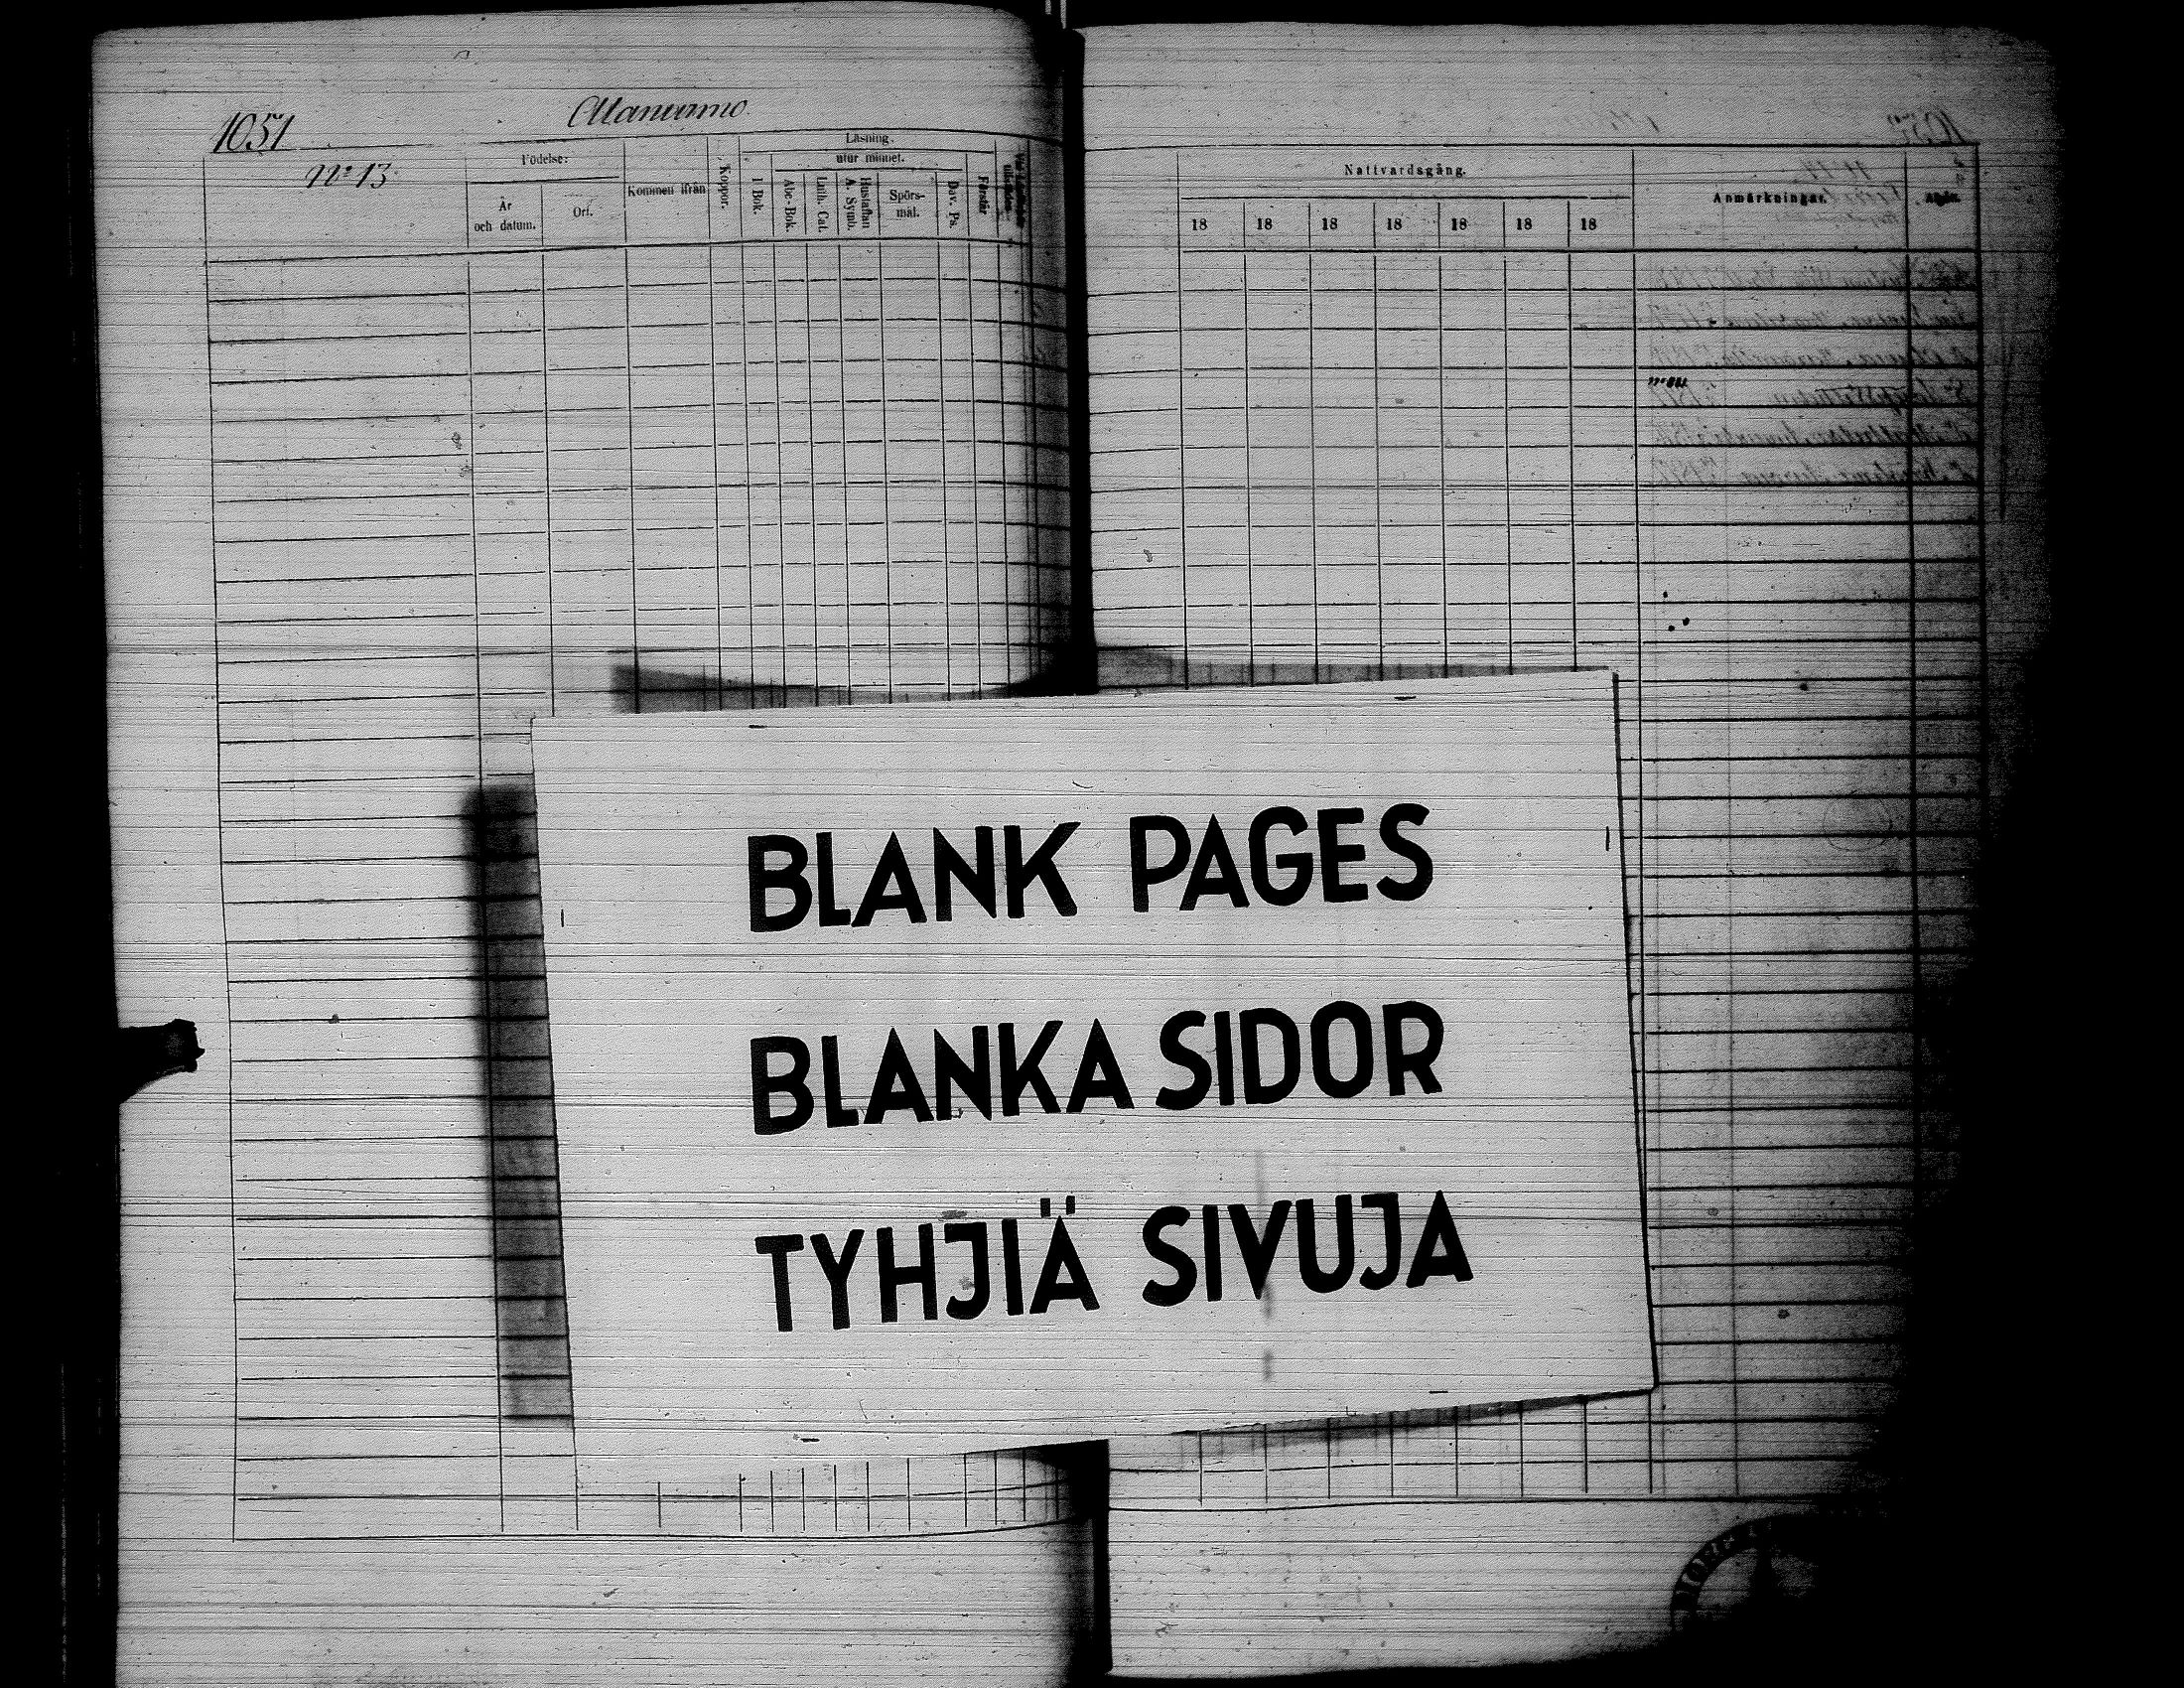 1051
No 13.
Födelse:
År
och datum.
Ort.
Kommen ifrån
Koppor.
Läsning.
utur minnet.
I Bok.
Abc-Bok.
Luth. Cat.
Hustaflan
A. Symb.
Spörs-
mål.
Dav. Ps.
Förstår
Nattvardsgång.
18 18 18 18 18 18 18
Anmärkningar.
BLANK PAGES
BLANKA SIDOR
TYHJIÄ SIVUJA